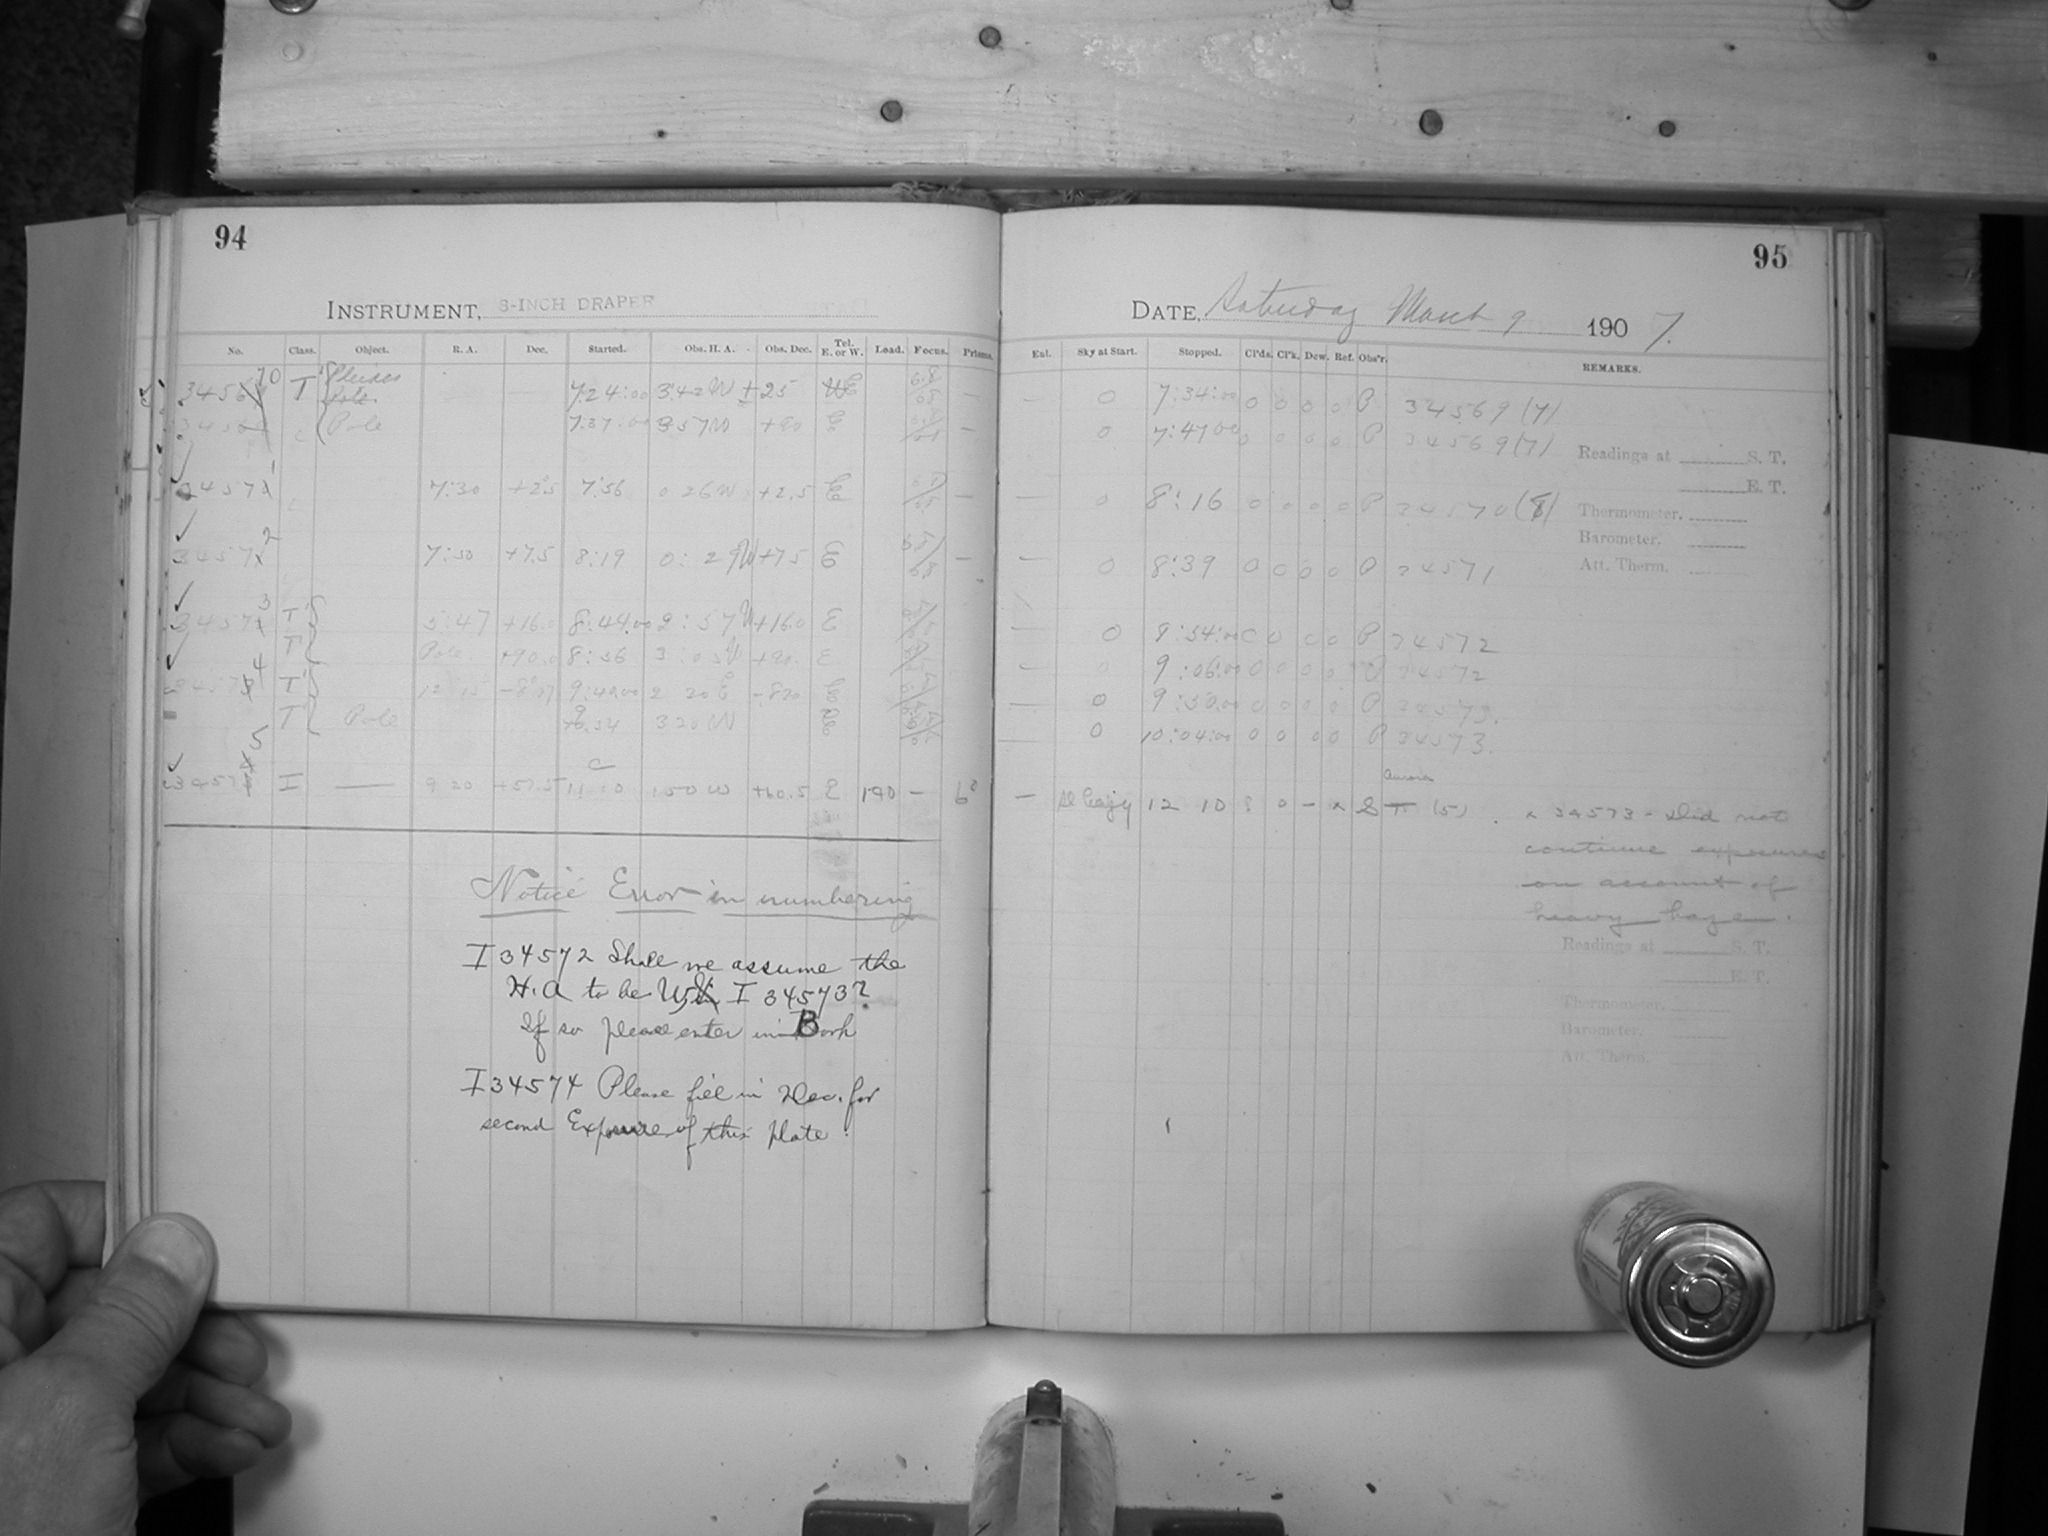 94
INSTRUMENT, 8-INCH DRAPER
No. Class. Object. R. A. Dec. Started. Obs. H. A. Obs. Dec. Tel. E. or W. Load. Focus. Prisms.
T Pole 7.24:00 3 42 W +25 E
Pole 7.37:00 3 57 W +90 E
34571 7:30 +2.5 7:56 0 26 W +2.5 E
34572 7:50 +7.5 8:19 0:29 W +7.5 E
34573 T 5:47 +16.0 8:44.00 2:57 W +16.0 E
T Pole +90.0 8:56 3:05 W +90. E
34574 T 9:40.00 2 20 E E
T Pole 3 20 W
34575 I — 9 20 +57.5 11 10 1 50 W +60.5 E 190 — 6°
Notice Error in numbering
I 34572 Shall we assume the
H.A to be W, I 34573?
If so please enter in Book
I 34574 Please fill in Dec. for
second Exposure of this plate.
95
DATE, Saturday March 9 1907.
Ent. Sky at Start. Stopped. Cl'ds. Cl'k. Dew. Ref. Obs'r. REMARKS.
— 0 7:34:00 0 0 0 0 P 34569 (7)
0 7:47 00 0 0 0 0 P 34569 (7)
Readings at S. T.
E. T.
— 0 8:16 0 0 0 0 P 34570 (8)
Thermometer.
Barometer.
— 0 8:39 0 0 0 0 P 34571
Att. Therm.
— 0 8:54:00 0 0 0 0 P 34572
— 0 9:06:00 0 0 0 0 P 34572
— 0 9:50.00 0 0 0 0 P 34573.
— 0 10:04:00 0 0 0 0 P 34573.
Aurora
— Sl hazy 12 10 0 — x S (5) x 34573 - Did not
continue exposures
on account of
heavy haze.
Readings at S. T.
E. T.
Thermometer.
Barometer.
Att. Therm.